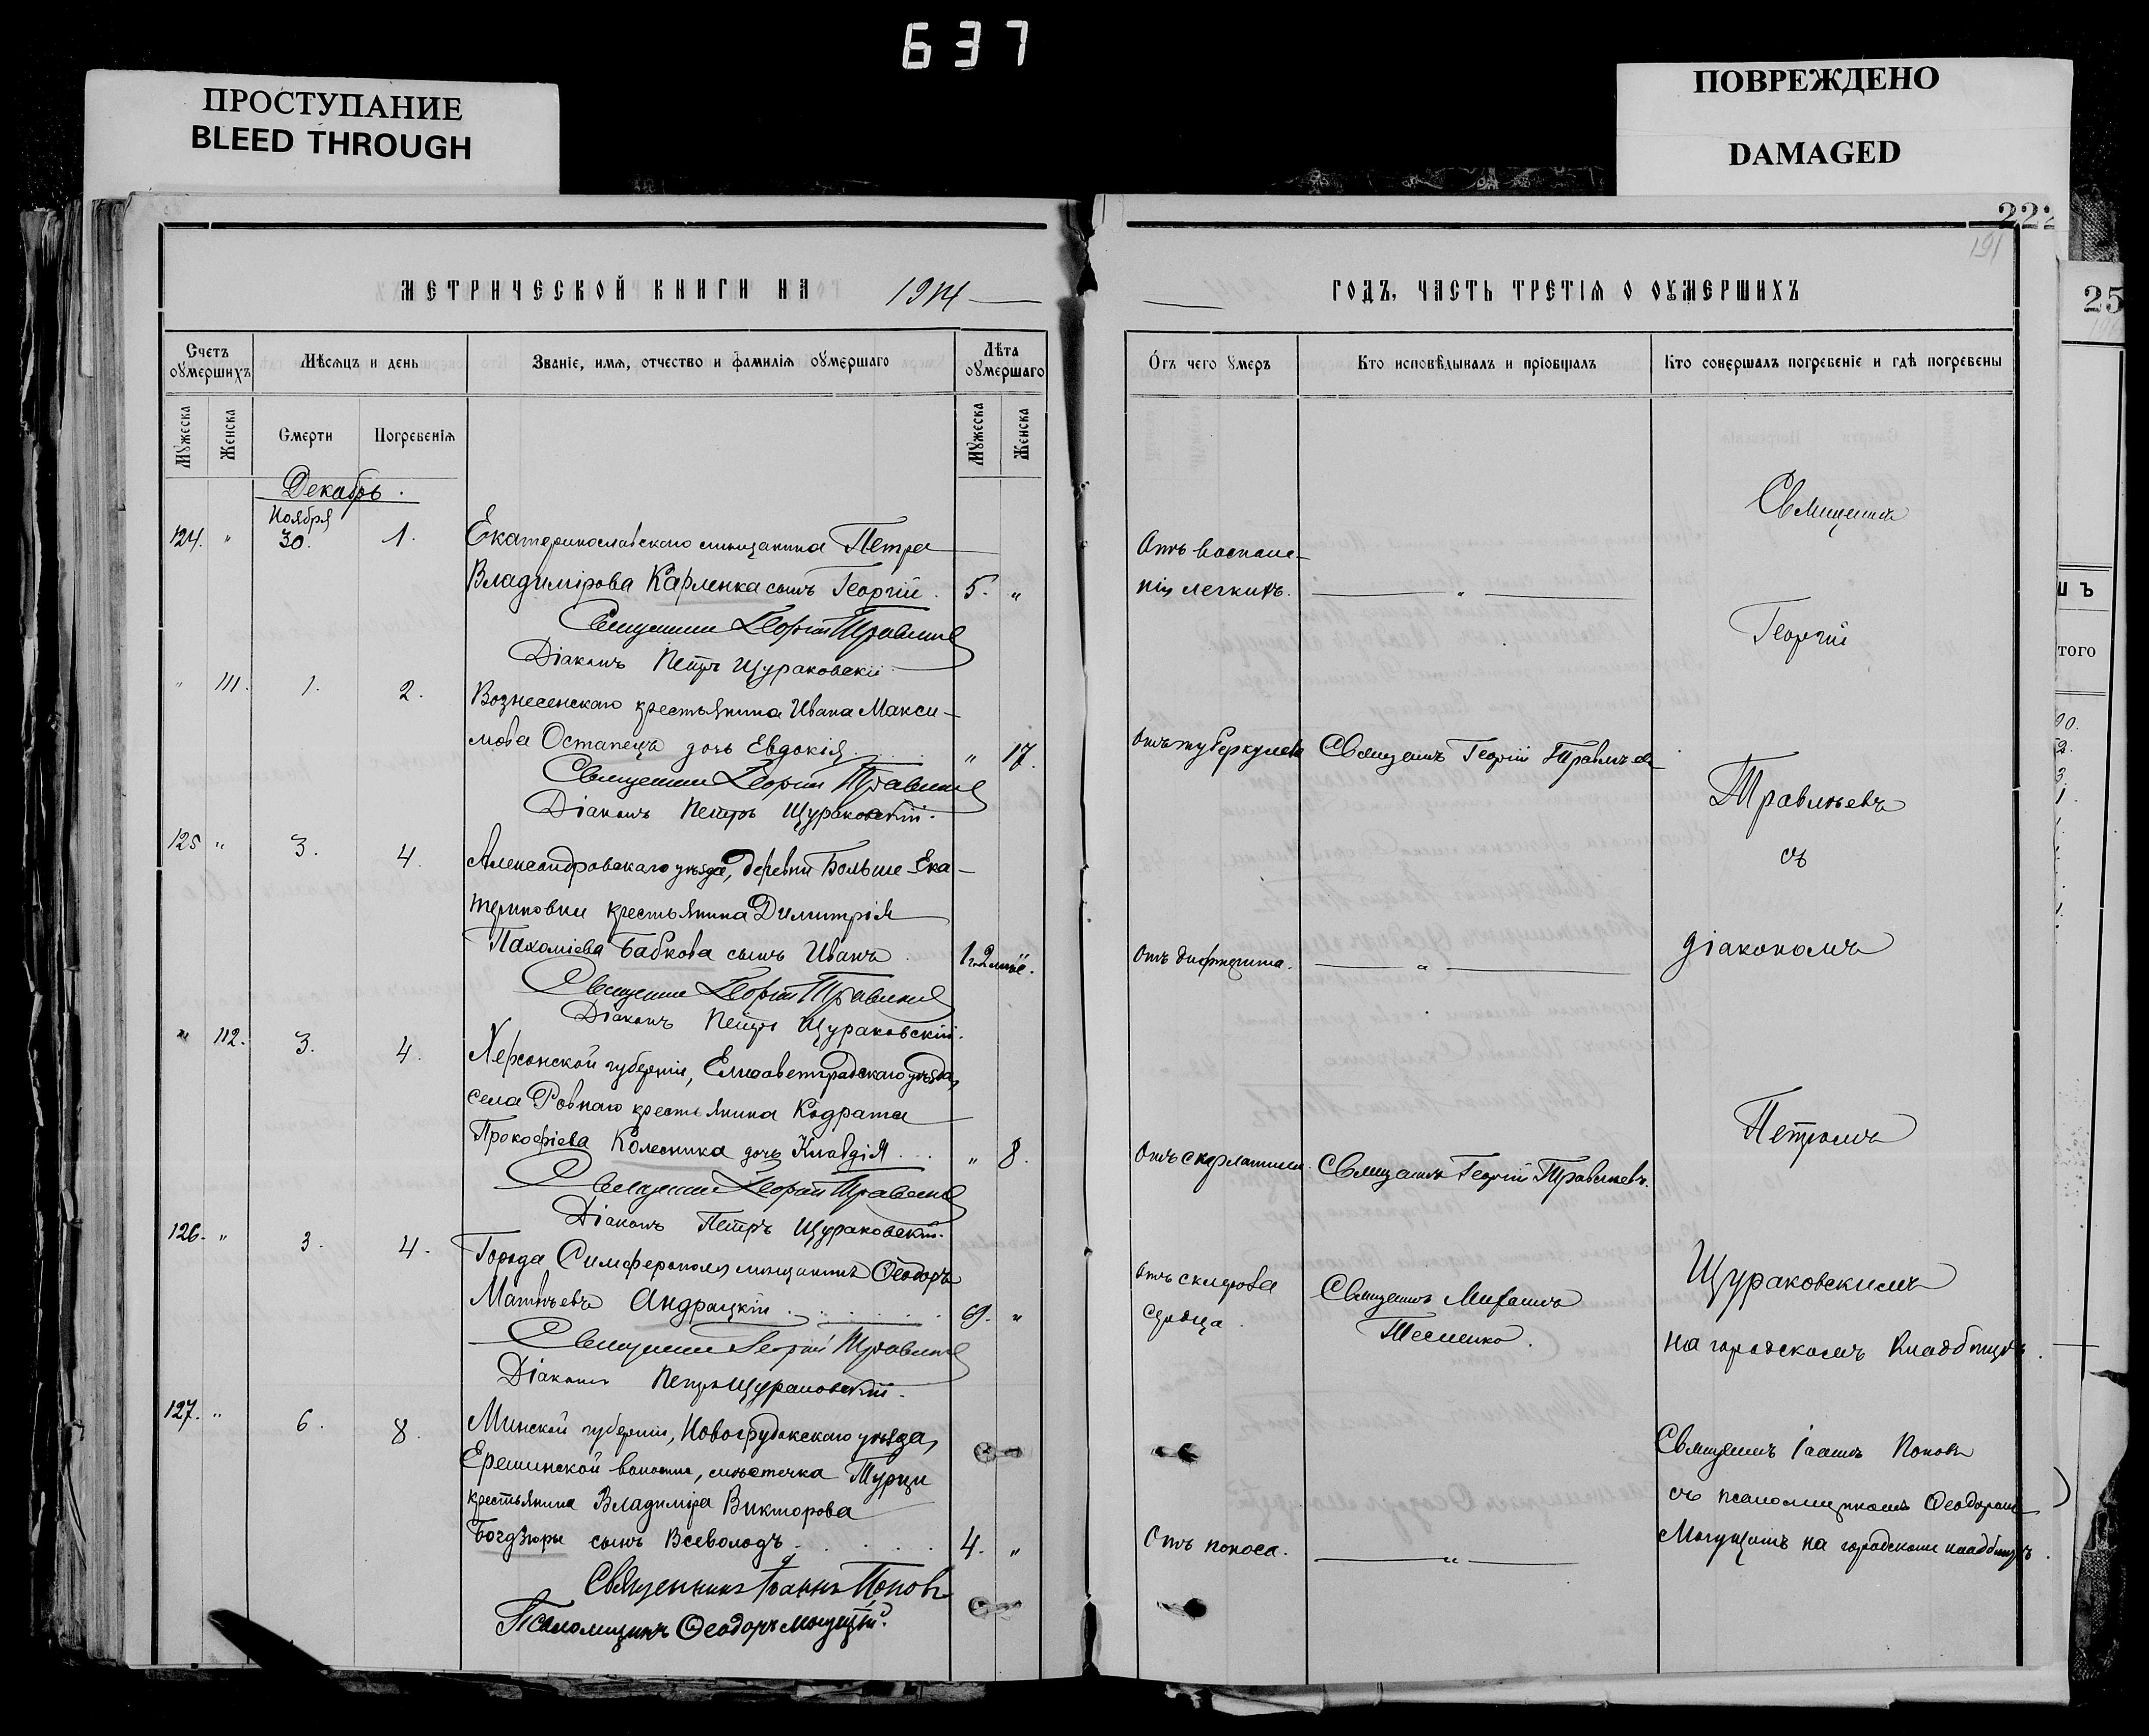 637
ПРОСТУПАНИЕ
BLEED THROUGH
ПОВРЕЖДЕНО
DAMAGED
222
191
25
МЕТРИЧЕСКОЙ КНИГИ НА 1914
Счетъ ѹмершихъ
Мѣсяцъ и день
Званіе, имя, отчество и фамилія ѹмершаго
Лѣта ѹмершаго
Мужеска
Женска
Смерти
Погребенія
Мужеска
Женска
Декабрь.
Ноября
124. " 30. 1. Екатеринославскаго мѣщанина Петра
Владимірова Карленка сынъ Георгій. 5. "
Священникъ Георгій Травлѣевъ
Діаконъ Петръ Щураковскій
" 111. 1. 2. Вознесенскаго крестьянина Ивана Макси-
мова Остапеца дочь Евдокія. " 17.
Священникъ Георгій Травлѣевъ
Діаконъ Петръ Щураковскій.
125 " 3. 4. Александровскаго уѣзда, деревни Больше-Ека-
териновки крестьянина Димитрія
Пахоміева Бабкова сынъ Иванъ. 1 г. 2 мѣс.
Священникъ Георгій Травлѣевъ
Діаконъ Петръ Щураковскій.
" 112. 3. 4. Херсонской губерніи, Елисаветградскаго уѣзда,
села Ровнаго крестьянина Кодрата
Прокофіева Колесника дочь Клавдія... " 8.
Священникъ Георгій Травлѣевъ
Діаконъ Петръ Щураковскій.
126. " 3. 4. Города Симферополя мѣщанинъ Ѳеодоръ
Матвѣевъ Андрацкій. "
Священникъ Георгій Травлѣевъ
Діаконъ Петръ Щураковскій.
127. " 6. 8. Минской губерніи, Новогрудокскаго уѣзда,
волости, мѣстечка Турци
крестьянина Владиміра Викторова
сынъ Всеволодъ. 4. "
Священникъ Іоаннъ Поповъ
Псаломщикъ Ѳеодоръ
ГОДЪ, ЧАСТЬ ТРЕТІЯ О ѸМЕРШИХЪ
Отъ чего ѹмеръ
Кто исповѣдывалъ и пріобщалъ
Кто совершалъ погребеніе и гдѣ погребены
Отъ воспале-
нія легкихъ. "
отъ туберкулеза Священникъ Георгій Травлѣевъ
Отъ дифтерита. "
Отъ скарлатины. Священникъ Георгій Травлѣевъ.
Отъ склероза
сердца.
Священникъ Михаилъ
Тесленко.
Отъ поноса. "
Священникъ
Георгій
Травлѣевъ
съ
діакономъ
Петромъ
Щураковскимъ
на городскомъ кладбищѣ.
Священникъ Іоаннъ Поповъ
съ псаломщикомъ Ѳеодоромъ
на городскомъ кладбищѣ.
того